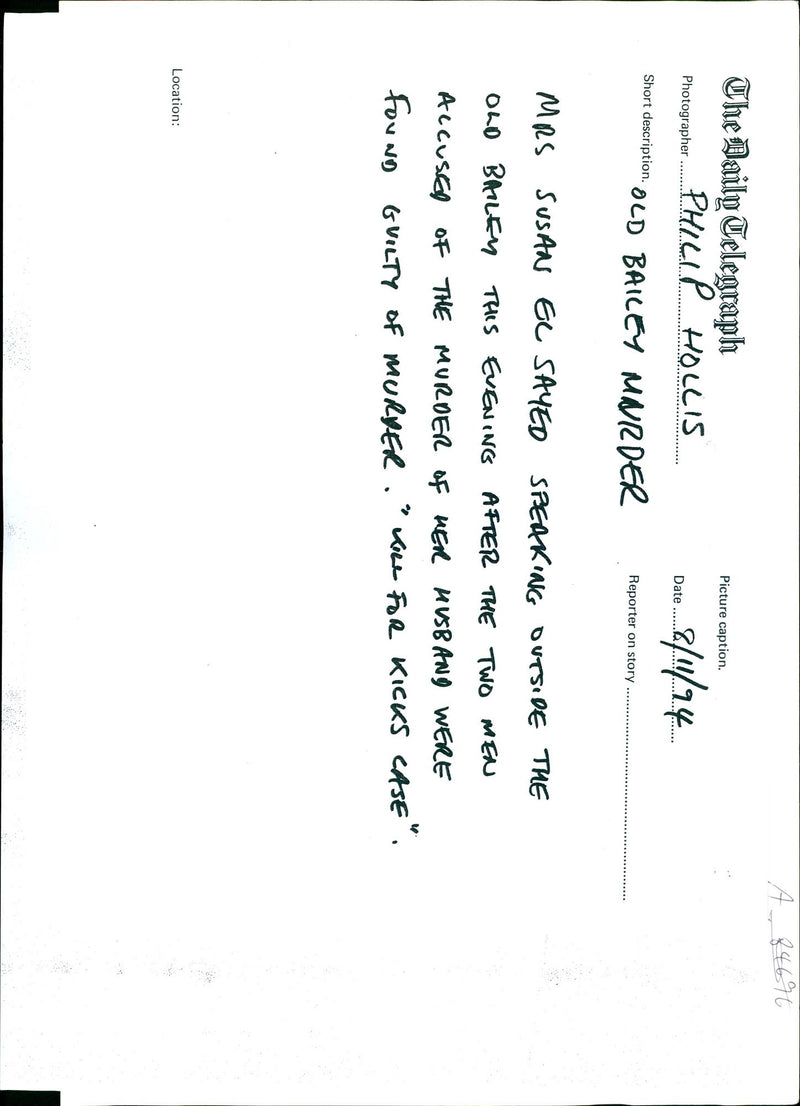 The Daily Telegraph
Picture caption.
Photographer ........ PHILIP HOLLIS
Date ...... 8/11/94
Short description. OLD BAILEY MNRDER
Reporter on story
MRS SUSAN EL SAYED SPEAKING OUTSIDE THE
OLD BAILEY THIS EVENING AFTER THE TWO MEN
ACCUSED OF THE MURDER OF HER HUSBAND WERE
FOUND GUILTY OF MURDER. "KILL FOR KICKS CASE".
Location:
A - 84696